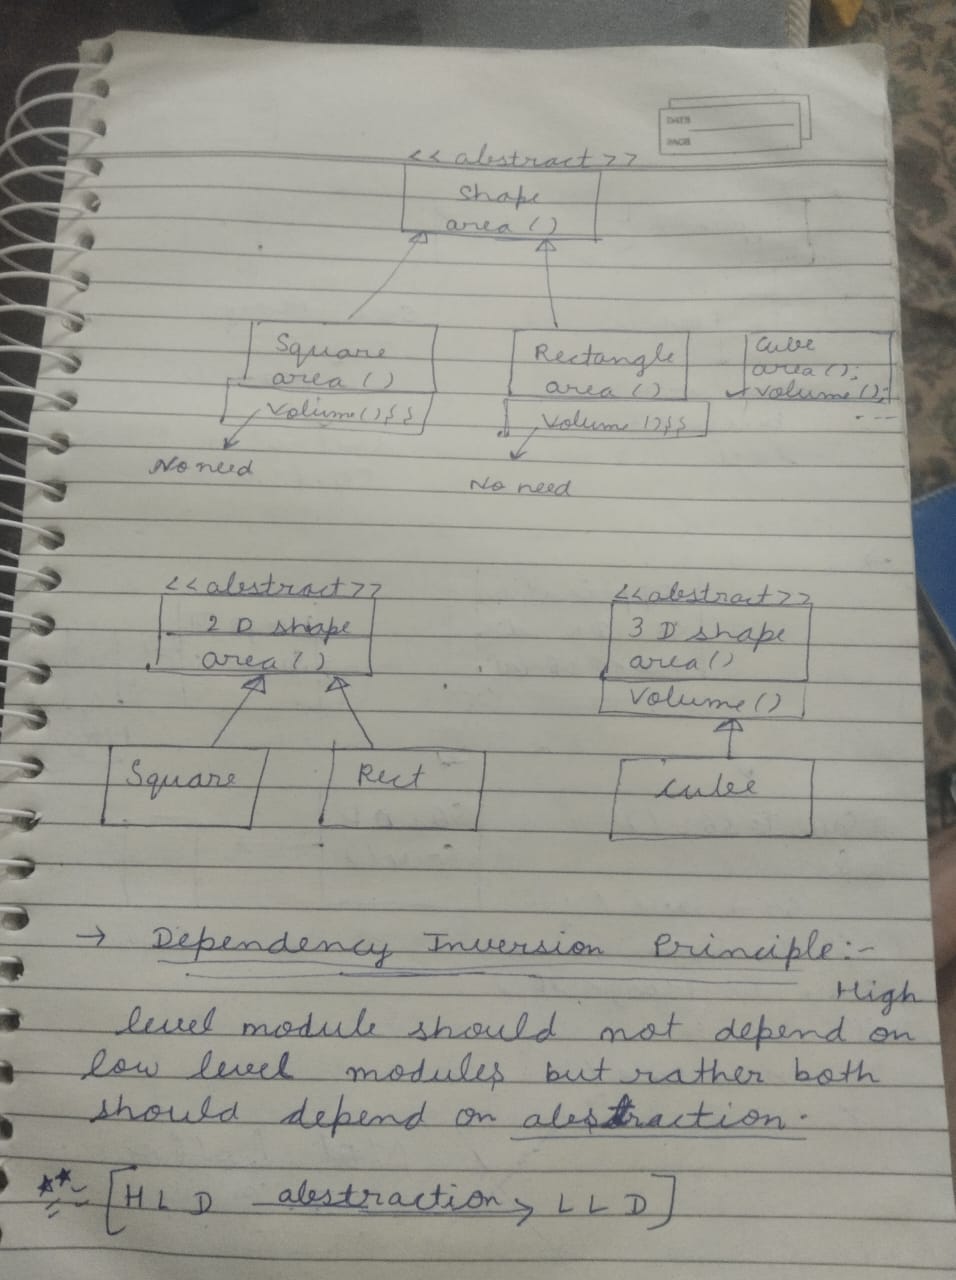 DATE
PAGE
<<abstract>>
Shape
area ()
Square
area ()
Volume(){}
No need
Rectangle
area ()
Volume (){}
No need
Cube
area ();
volume ();
<<abstract>>
2 D shape
area ()
Square
Rect
<<abstract>>
3 D shape
area ()
Volume ()
cube
→ Dependency Inversion Principle:-
High
level module should not depend on
low level modules but rather both
should depend on abstraction.
[HLD abstraction→ LLD]